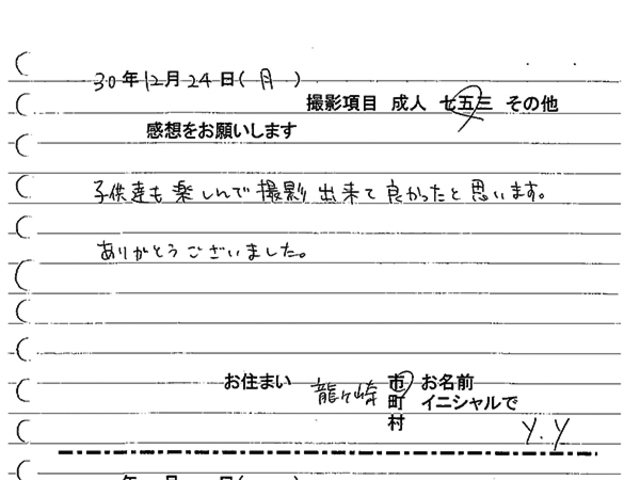 30年12月24日(月)
撮影項目 成人 七五三 その他
感想をお願いします
子供達も楽しんで撮影出来て良かったと思います。
ありがとうございました。
お住まい 龍ヶ崎 市 お名前
町 イニシャルで
村
Y.Y
年 月 日( )